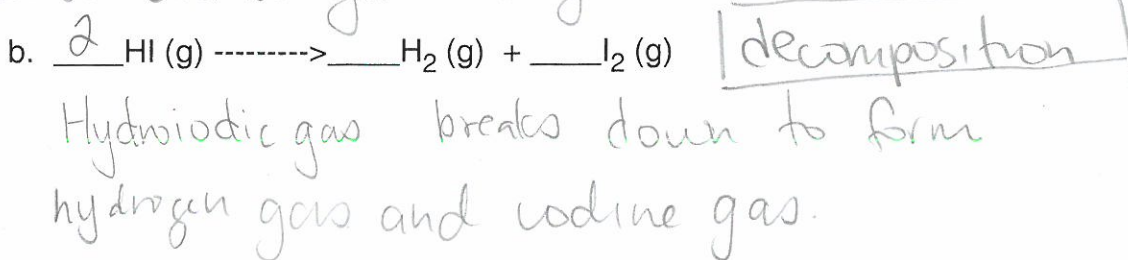 b. 2 HI (g) ---------->____H₂ (g) + ____I₂ (g) decomposition
Hydroiodic gas breaks down to form
hydrogen gas and iodine gas.